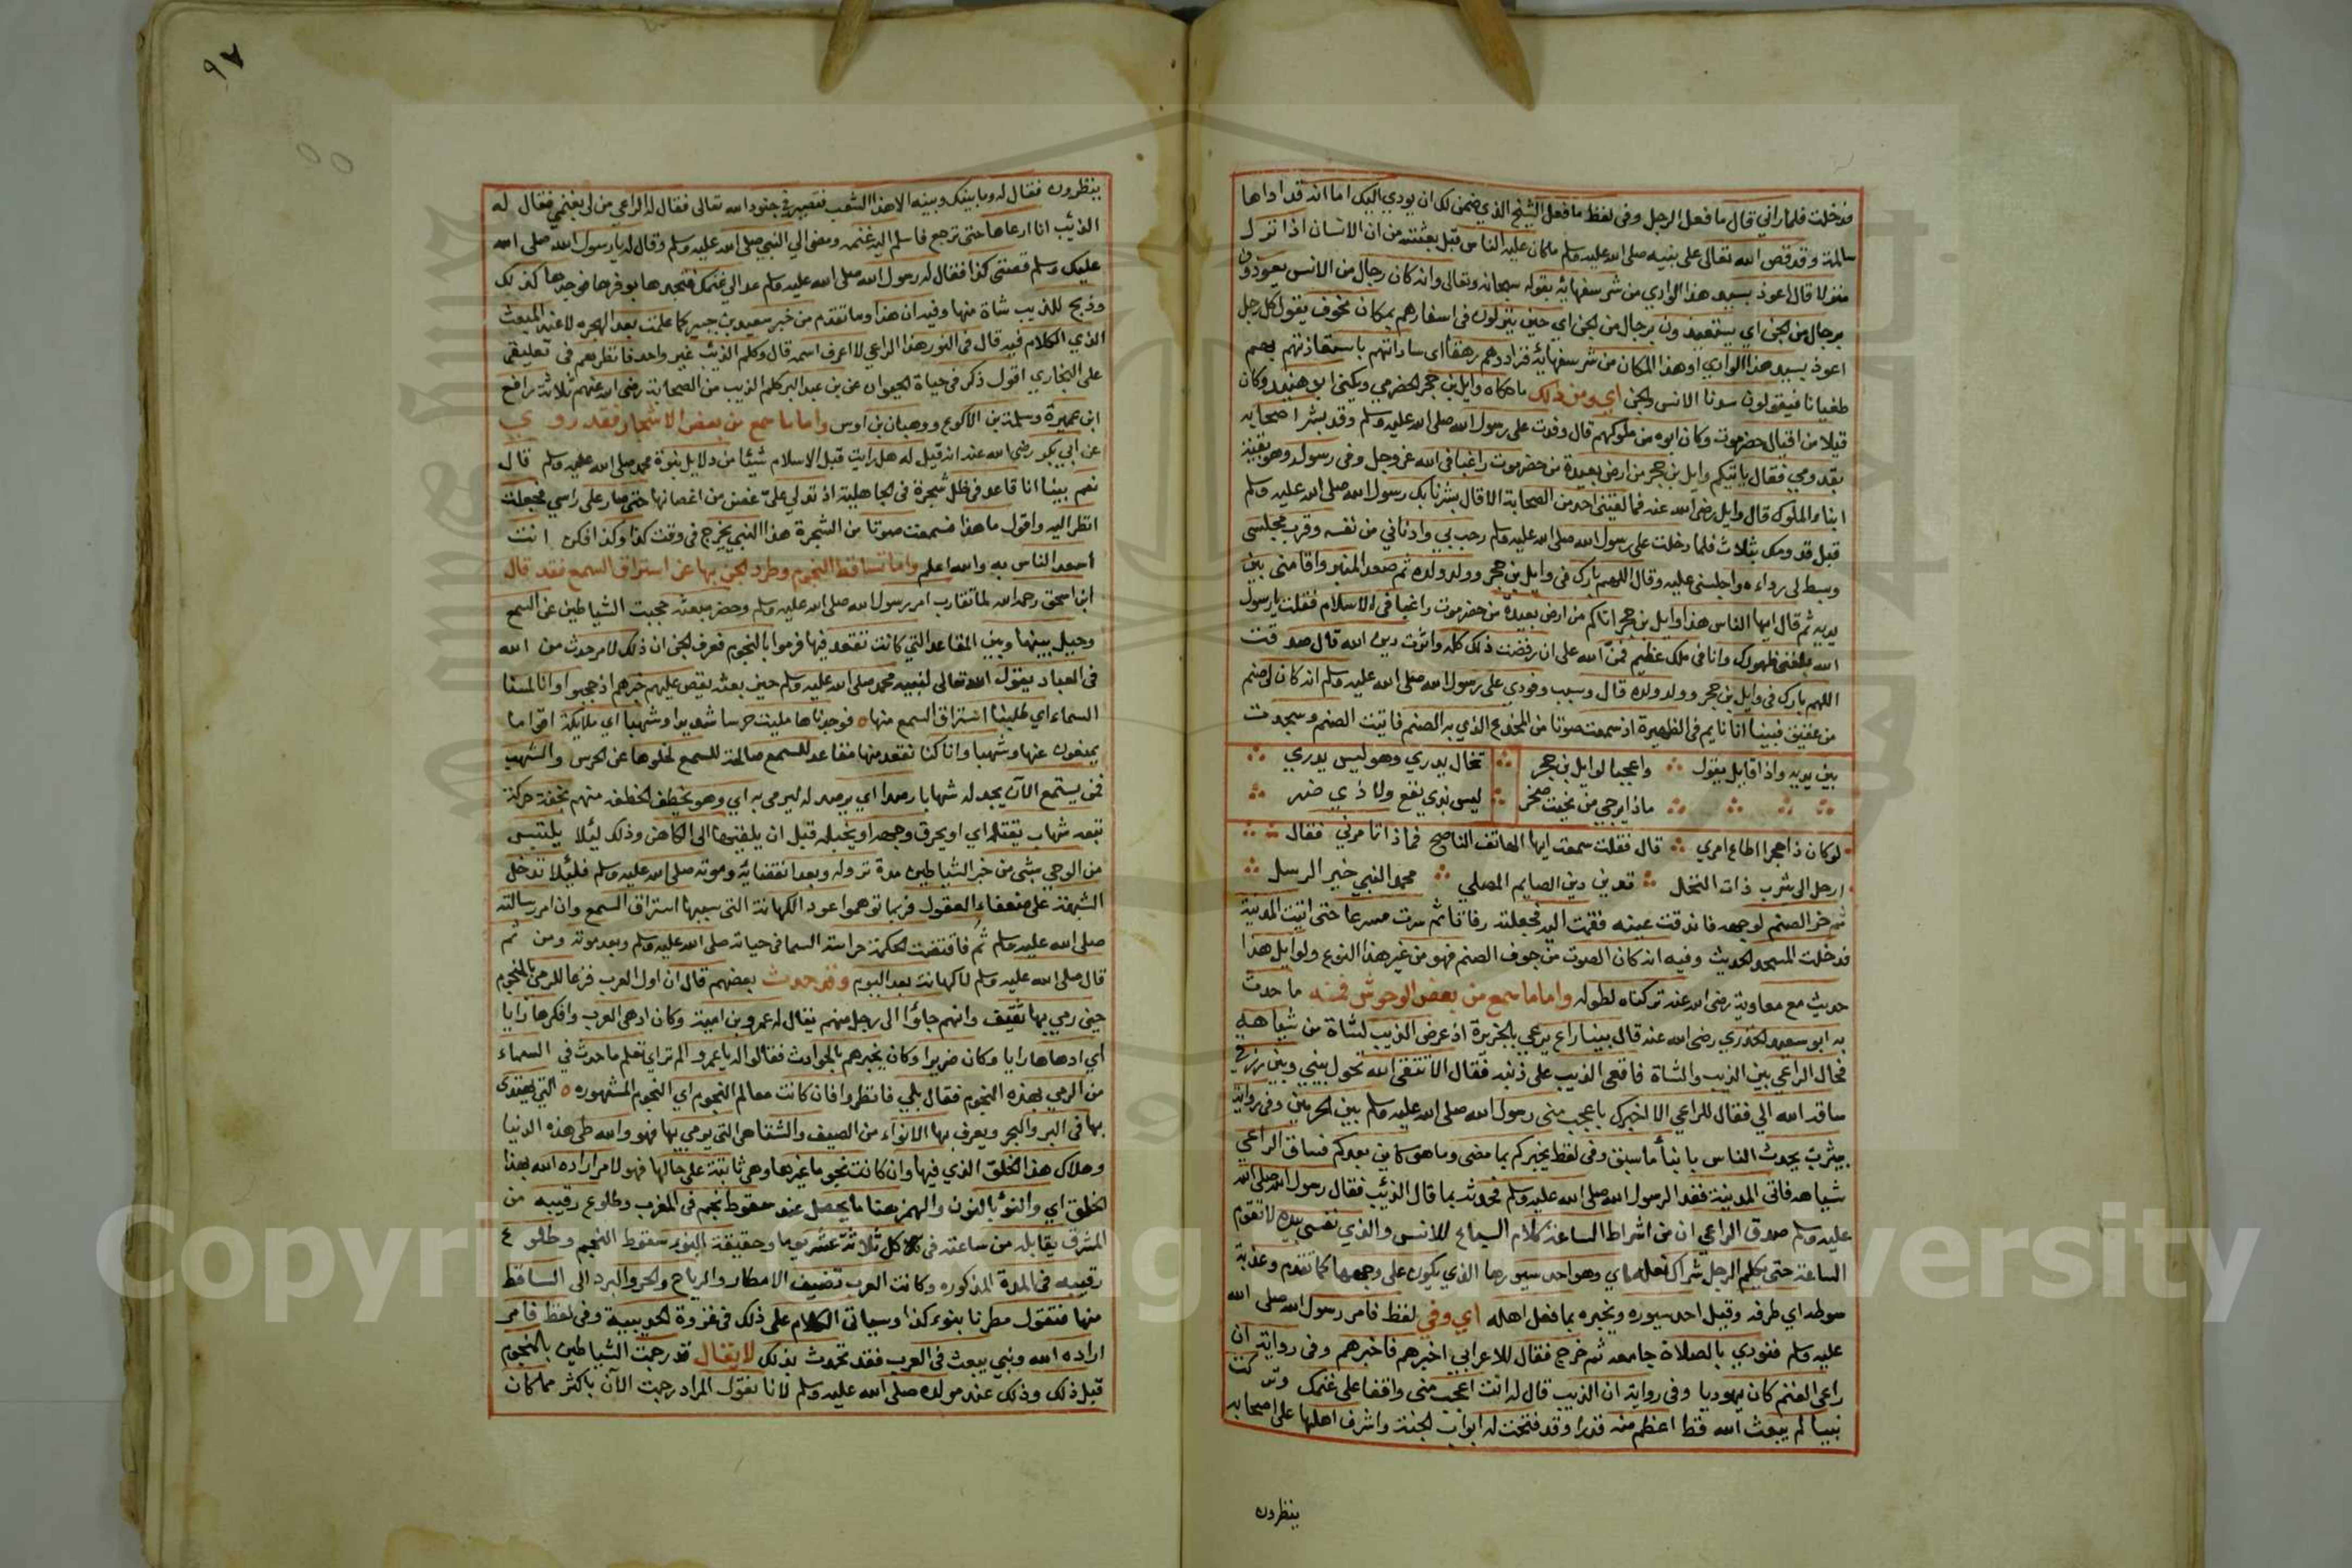 فدخلت فلما راني قال ما فعل الرجل وفى لفظ ما فعل الشيخ الذي ضمن لك ان يودي اليك اما انه قد اداها
سالمة وقد قص الله تعالى على نبيه صلى الله عليه وسلم ما كان عليه الناس قبل بعثته من ان الانسان اذا نزل
منزلا قال اعوذ بسيد هذا الوادي من شر سفهائه بقوله سبحانه وتعالى وانه كان رجال من الانس يعوذون
برجال من الجن اي يستعيذون برجال من الجن اي حين ينزلون فى اسفارهم بمكان مخوف يقول كل رجل
اعوذ بسيد هذا الوادي او هذا المكان من شر سفهائه فزادوهم رهقا اى ساداتهم باستعاذتهم بهم
طغيانا فيقولون سدنا الانس والجن اي ومن ذلك ما حكاه وايل بن حجر الحضرمي ويكنى ابا هنيد وكان
قيلا من اقيال حضرموت وكان ابوه من ملوكهم قال وفدت على رسول الله صلى الله عليه وسلم وقد بشر اصحابه
بقدومي فقال ياتيكم وايل بن حجر من ارض بعيدة من حضرموت راغبا فى الله عز وجل وفى رسوله وهو بقية
ابناء الملوك قال وايل رضى الله عنه فما لقينى احد من الصحابة الا قال بشرنا بك رسول الله صلى الله عليه وسلم
قبل قدومك بثلاث فلما دخلت على رسول الله صلى الله عليه وسلم رحب بي وادناني من نفسه وقرب مجلسى
وبسط لى رداءه واجلسنى عليه وقال اللهم بارك فى وايل بن حجر وولده وولد ولده ثم صعد المنبر واقامنى بين
يديه ثم قال ايها الناس هذا وايل بن حجر اتاكم من ارض بعيدة من حضرموت راغبا فى الاسلام فقلت يا رسول
الله بلغنى ظهورك وانا فى ملك عظيم فمن الله على ان رفضت ذلك كله واثرت دين الله قال صدقت
اللهم بارك فى وايل بن حجر وولده وولد ولده قال وسبب وفودي على رسول الله صلى الله عليه وسلم انه كان لى صنم
من عقيق فبينا انا نايم فى الظهيرة اذ سمعت صوتا من المخدع الذي به الصنم فاتيت الصنم وسجدت
بين يديه واذا قايل يقول واعجبا لوايل بن حجر تخال يدري وهو ليس يدري
ماذا يرجى من نحيت صخر ليس بذي نفع ولا ذي ضر
لو كان ذا حجر اطاع امري قال فقلت سمعت ايها الهاتف الناصح فماذا تامرني فقال
ارحل الى يثرب ذات النخل تدين دين الصايم المصلي محمد النبي خير الرسل
ثم خر الصنم لوجهه فاندقت عينه فقمت اليه فجعلته رفاتا ثم سرت مسرعا حتى اتيت المدينة
فدخلت المسجد الحديث وفيه انه كان الصوت من جوف الصنم فهو من غير هذا النوع ولوايل هذا
حديث مع معاوية رضى الله عنه تركناه لطوله واما ما سمع من بعض الوحوش فمنه ما حدث
به ابو سعيد الخدري رضى الله عنه قال بينا راع يرعى بالجزيرة اذ عرض الذيب لشاة من شياهه
فحال الراعي بين الذيب والشاة فاقعى الذيب على ذنبه فقال الا تتقى الله تحول بيني وبين رزق
ساقه الله الي فقال للراعي الا اخبرك باعجب منى رسول الله صلى الله عليه وسلم بين الحرتين وفى رواية
بيثرب يحدث الناس بانباء ما سبق وفى لفظ يخبركم بما مضى وما هو كاين بعدكم فساق الراعي
شياهه فاتى المدينة فغدا لرسول الله صلى الله عليه وسلم فحدثه بما قال الذئب فقال رسول الله صلى الله
عليه وسلم صدق الراعي ان من اشراط الساعة كلام السباع للانس والذي نفسى بيده لا تقوم
الساعة حتى يكلم الرجل شراك نعله اي وهو احد سيورها الذي يكون على وجهها كما تقدم وعذبة
سوطه اي طرفه وقيل احد سيوره ويخبره بما فعل اهله اي وفي لفظ فامر رسول الله صلى الله
عليه وسلم فنودي بالصلاة جامعة ثم خرج فقال للاعرابي اخبرهم فاخبرهم وفى رواية ان
راعى الغنم كان يهوديا وفى رواية ان الذيب قال له انت اعجب منى واقفا على غنمك وتركت
نبيا لم يبعث الله قط اعظم منه قدرا وقد فتحت له ابواب الجنة واشرف اهلها على اصحابه
ينظرون
٩٧
ينظرون فقال له وما بينك وبينه الا هذا الشعب فتصير فى جنود الله تعالى فقال له الراعي من لى بغنمي فقال له
الذئب انا ارعاها حتى ترجع فاسلم اليه غنمه ومضى الي النبي صلى الله عليه وسلم وقال له يا رسول الله صلى الله
عليك وسلم قصتى كذا فقال له رسول الله صلى الله عليه وسلم عد الى غنمك فتجدها بوفرها فوجدها كذلك
وذبح للذيب شاة منها وفيه ان هذا وما تقدم من خبر سعيد بن جبير كما علمت بعد الهجره لا عند المبعث
الذي الكلام فيه قال فى النور هذا الراعي لا اعرف اسمه قال وكلم الذئب غير واحد فانظرهم فى تعليقى
على البخاري اقول ذكر فى حياة الحيوان عن بن عبد البر كلم الذيب من الصحابة رضى الله عنهم ثلاثة رافع
ابن عميرة وسلمة بن الاكوع ووهبان بن اوس واما ما سمع من بعض الاشجار فقد روي
عن ابي بكر رضى الله عنه انه قيل له هل رايت قبل الاسلام شيئا من دلايل نبوة محمد صلى الله عليه وسلم قال
نعم بينا انا قاعد فى ظل شجرة فى الجاهلية اذ تدلي علي غصن من اغصانها حتى صار على راسي فجعلت
انظر اليه واقول ما هذا فسمعت صوتا من الشجرة هذا النبي يخرج فى وقت كذا وكذا فكن انت
اسعد الناس به والله اعلم واما تساقط النجوم وطرد الجن بها عن استراق السمع فقد قال
ابن اسحق رحمه الله لما تقارب امر رسول الله صلى الله عليه وسلم وحضر مبعثه حجبت الشياطين عن السمع
وحيل بينها وبين المقاعد التي كانت تقعد فيها فرموا بالنجوم فعرف الجن ان ذلك لامر حدث من الله
فى العباد يقول الله تعالى لنبيه محمد صلى الله عليه وسلم حين بعثه يقص عليهم خبرهم اذ حجبوا وانا لمسنا
السماء اي طلبنا استراق السمع منها ه فوجدناها مليت حرسا شديدا وشهبا اي ملايكة اقواما
يمنعون عنها وشهبا وانا كنا نقعد منها مقاعد للسمع صالحة للسمع لخلوها عن الحرس والشهب
فمن يستمع الآن يجد له شهابا رصدا اي يرصد له ليرمى به اي وهو يخطف الخطفه منهم بخفة حركة
تبعه شهاب ثقتله اي او يحرق وجهه او يخبله قبل ان يلقيها الى الكاهن وذلك ليلا يلتبس
من الوحي بشى من خبر الشياطين مدة نزوله وبعد انقضائه وموته صلى الله عليه وسلم فليلا تدخل
الشبهة على ضعفاء العقول فربما توهموا عود الكهانة التى سببها استراق السمع وان امر رسالته
صلى الله عليه وسلم ثم فاقتضت الحكمة حراسة السما فى حياته صلى الله عليه وسلم وبعد موته ومن ثم
قال صلى الله عليه وسلم لا كهانة بعد اليوم وقد حدث بعضهم قال ان اول العرب فزعا للرمي بالنجوم
حين رمي بها ثقيف وانهم جاؤا الى رجل منهم يقال له عمرو بن امية وكان ادهى العرب وافكرها رايا
اي ادهاها رايا وكان ضريرا وكان يخبرهم بالحوادث فقالوا له يا عمرو الم تراي تعلم ما حدث في السماء
من الرمي بهذه النجوم فقال بلي فانظروا فان كانت معالم النجوم اي النجوم المشهوره ه التي يهتدى
بها فى البر والبحر ويعرف بها الانواء من الصيف والشتا هى التي يرمي بها فهو والله طى هذه الدنيا
وهلاك هذا الخلق الذي فيها وان كانت نجوما غيرها وهى ثابتة على حالها فهو لامر اراده الله بهذا
الخلق اي والنؤ بالنون والهمز هنا ما يحصل عند سقوط نجم فى المغرب وطلوع رقيبه من
المشرق يقابله من ساعته فى كل ثلاثة عشر يوما وحقيقة النوء سقوط النجم وطلوع
رقيبه فى المدة المذكوره وكانت العرب تضيف الامطار والرياح والحر والبرد الى الساقط
منها فتقول مطرنا بنوء كذا وسياتى الكلام على ذلك فى غزوة الحديبية وفى لفظ فامر
اراده الله ونبي يبعث فى العرب فقد تحدث بذلك لا يقال قد رجمت الشياطين بالنجوم
قبل ذلك وذلك عند مولده صلى الله عليه وسلم لانا نقول المراد رجمت الآن باكثر مما كان
Copyright © King Saud University